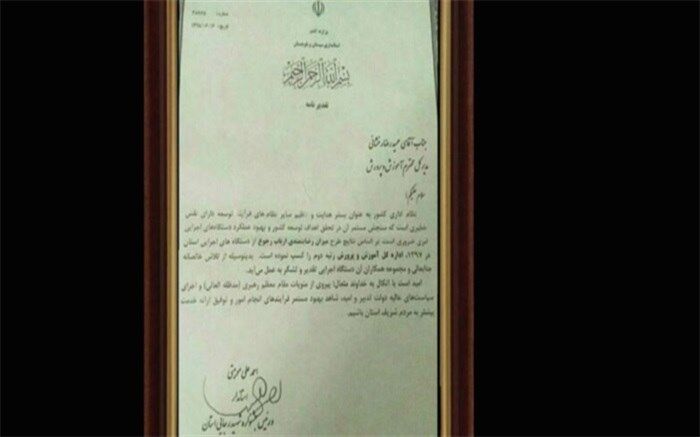 وزارت کشور
استانداری سیستان و بلوچستان
بسم الله الرحمن الرحیم
تقدیر نامه
جناب آقای حمیدرضا رخشانی
مدیرکل محترم آموزش و پرورش
سلام علیکم؛
نظام اداری کشور به عنوان بستر هدایت و تنظیم سایر نظام های فرآیند توسعه دارای نقش
خطیری است که سنجش مستمر آن در تحقق اهداف توسعه کشور و بهبود عملکرد دستگاه‌های اجرایی
امری ضروری است بر اساس نتایج طرح میزان رضامندی ارباب رجوع از دستگاه های اجرایی استان
در ۱۳۹۷، اداره کل آموزش و پرورش رتبه دوم را کسب نموده است. بدینوسیله از تلاش خالصانه
جنابعالی و مجموعه همکاران آن دستگاه اجرایی تقدیر و تشکر به عمل می‌آید.
امید است با اتکال به خداوند متعال، پیروی از منویات مقام معظم رهبری (مدظله العالی) و اجرای
سیاست‌های عالیه دولت تدبیر و امید، شاهد بهبود مستمر فرآیندهای انجام امور و توفیق ارائه خدمت
بیشتر به مردم شریف استان باشیم.
احمد علی موهبتی
استاندار
و رئیس جشنواره شهید رجایی استان